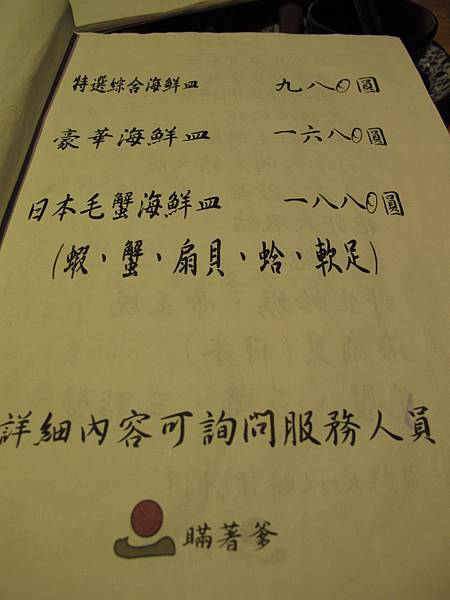 特選綜合海鮮皿 九八0圓
豪華海鮮皿 一六八0圓
日本毛蟹海鮮皿 一八八0圓
(蝦、蟹、扇貝、蛤、軟足)
詳細內容可詢問服務人員
瞞著爹